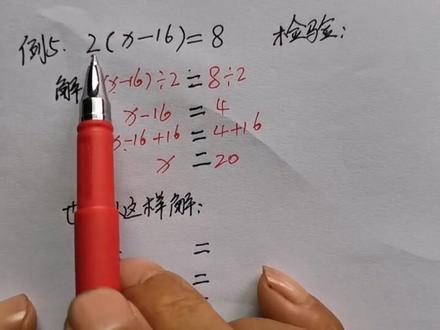 例5. 2(x-16)=8 检验:
解 (x-16)÷2=8÷2
x-16=4
x-16+16=4+16
x=20
这样解:
=
=